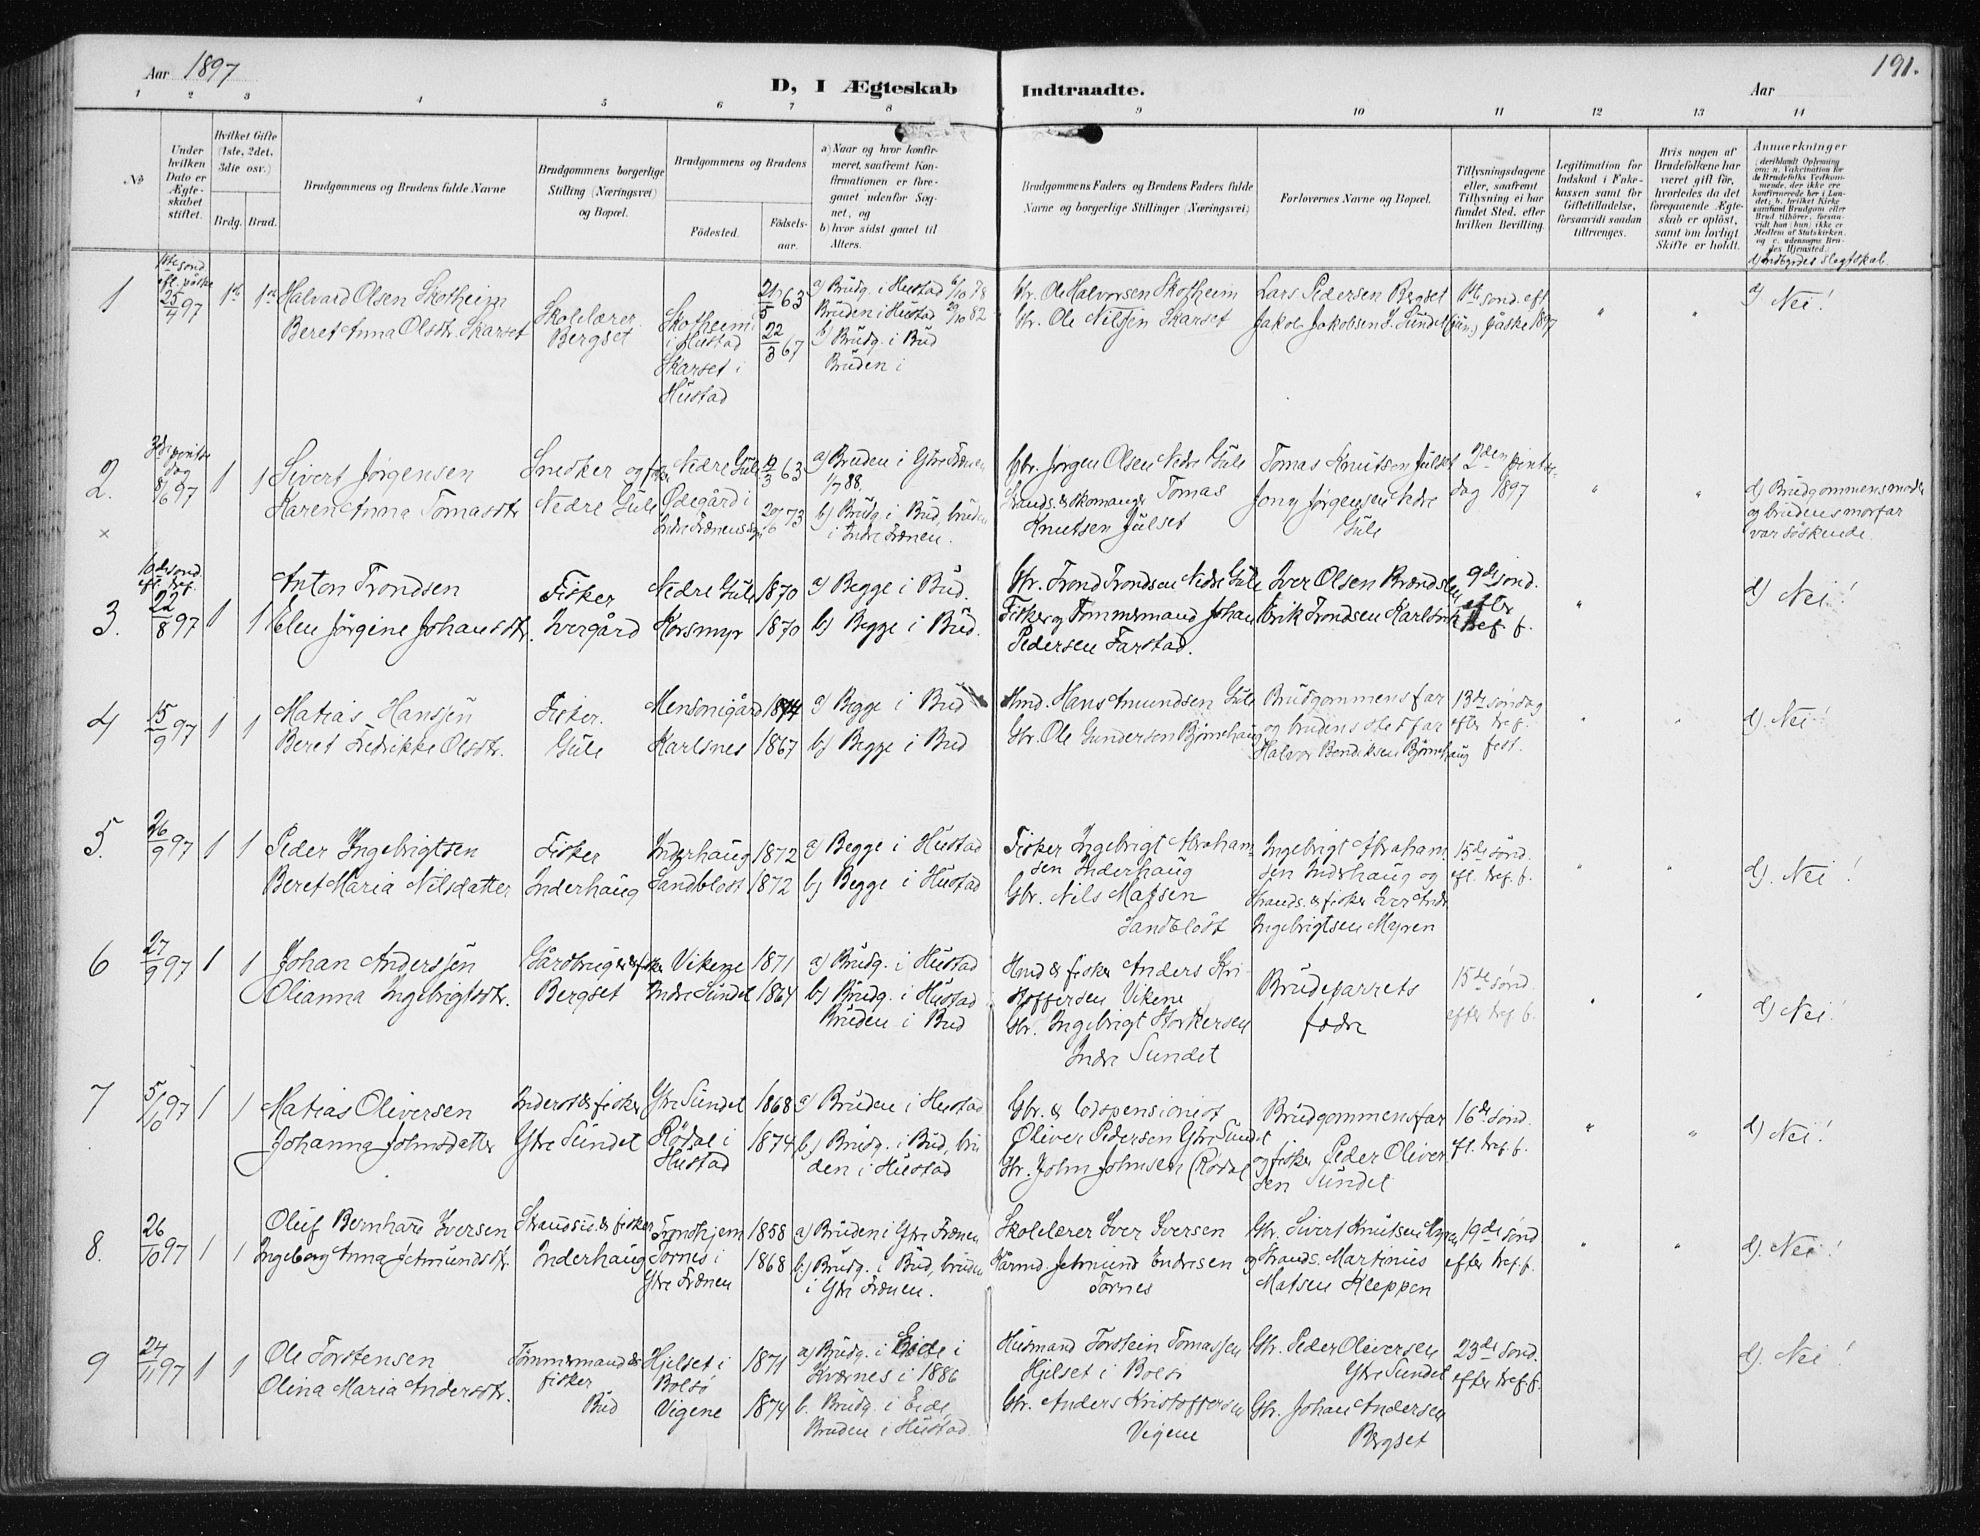 Aar 1897
D, I Ægteskab Indtraadte.
Aar
191.
1 2 3 4 5 6 7 8 9 10 11 12 13 14
No
Under hvilken Dato er Ægteskabet stiftet.
Hvilket Gifte (1ste, 2det, 3die osv.)
Brdg. Brud.
Brudgommens og Brudens fulde Navne
Brudgommens borgerlige Stilling (Næringsvei) og Bopæl.
Brudgommens og Brudens
Födested.
Födselsaar.
a) Naar og hvor konfirmeret, saafremt Konfirmationen er foregaaet udenfor Sognet, og
b) hvor sidst gaaet til Alters.
Brudgommens Faders og Brudens Faders fulde Navne og borgerlige Stillinger (Næringsvei)
Forlovernes Navne og Bopæl.
Tillysningsdagene eller, saafremt Tillysning ei har fundet Sted, efter hvilken Bevilling.
Legitimation for Indskud i Enkekassen samt for Giftetilladelse, forsaavidt saadan tiltrænges.
Hvis nogen af Brudefolkene har været gift før, hvorledes da det foregaaende Ægteskab er opløst, samt om lovligt Skifte er holdt.
Anmærkninger
d) indbyrdes slegtskab
1
1ste sönd. eft. påske
25/4 97
1ste 1ste
Halvard Olsen Skotheim
Beret Anna Olsdtr. Skarset
Skolelærer
Bergset
Skotheim i Hustad
Skarset i Hustad
21/5 63
22/3 67
a) Brudg. i Hustad 6/10 78
Bruden i Hustad 82
b) Brudg. i Bud
Bruden i
Gbr. Ole Halvorsen Skotheim
Gbr. Ole Nilssen Skarset
Lars Pedersen Bergset
Jakob Jakobsen
1ste sönd. eft. påske 1897
d) Nei!
2.
8/6 97
1 1
Sivert Jørgensen
Karen Anna Tomasdtr
Snedker og fisker
Nedre Gule
Nedre Gule
Ödegård i
63
73
a) Bruden i Ytre Frænen
1/7 88.
b) Brudg. i Bud, bruden
i Indre Frænen.
Gbr. Jørgen Olsen Nedre Gule
Strands. & skomager Tomas
Knutsen Julset
Tomas Knutsen Julset
Jørgensen Nedre
Gule
2den pintse-
dag 1897
d) Brudgommens moder
og brudens morfar
var söskende.
3.
10de sönd.
eft. tref.
22/8 97
1 1
Anton Trondsen
Elen Jörgine Johansdtr.
Fisker
Ivergård
Nedre Gule
Korsmyr
1870
1870
a) Begge i Bud.
b) Begge i Bud.
Gbr. Trond Trondsen Nedre Gule
Fisker og Tømmermand Johan
Pedersen Farstad.
Iver Olsen
Erik Trondsen Karlsvik
9de sönd.
efter
tref. f.
d) Nei!
4
15/9 97
1 1
Matias Hanssen
Beret Fredrikke Olsdtr.
Fisker.
Gule
Mensonigård
Karlsnes
1874
1867
a) Begge i Bud
b) Begge i Bud
Hmd. Hans Amundsen Gule
Gbr. Ole Gundersen Bjørnehaug
Brudgommens far
og brudens stedfar
Halvor Bendiksen Bjørnehaug
13de söndag
efter tref.
fest.
d) Nei!
5.
26/9 97
1 1
Peder Ingebrigtsen
Beret Maria Nilsdatter
Fisker
Inderhaug
Inderhaug
Sandblost
1872
1872
a) Begge i Hustad
b) Begge i Hustad
Fisker Ingebrigt Abraham-
sen Inderhaug
Gbr. Nils Matsen
Sandblost
Ingebrigt Abraham-
sen Inderhaug og
Strands. & fisker Iver
Ingebrigtsen Myren
15de sönd.
eft. tref. f.
d). Nei!
6
27/9 97
1 1
Johan Anderssen
Olianna Ingebrigtsdtr.
Gårdbruger & fisker
Bergset
Vikene
Indre Sundet
1871
1864
a) Brudg. i Hustad
b) Brudg. i Hustad
Bruden i Bud
Hmd & fisker Anders Kri-
stoffersen Vikene
Gbr. Ingebrigt Storkersen
Indre Sundet
Brudeparrets
fædre
15de sönd.
efter tref. f.
d) Nei!
7
5/10 97
1 1
Matias Oliversen
Johanna Johnsdatter
Inderst & fisker
Ytre Sundet
Ytre Sundet
Rödal i
Hustad
1868
1874
a) Bruden i Hustad
b) Brudg. i Bud, bru
den i Hustad
Gbr. & lodspensionist
Oliver Pedersen Ytre Sundet
Gbr. John Johnsen Rødal
Brudgommens far
og fisker Peder Oliver-
sen Sundet
16de sönd.
eft. tref. f.
d) Nei!
8.
26/10 97
1 1
Oluf Bernhard Iversen
Ingeborg Anna Jetmundsdtr.
Strandsid. & fisker
Inderhaug
Trondhjem
Tornes i
Ytre Frænen
1858
1868
a) Bruden i Ytre Frænen
b.) Brudg. i Bud, bruden
i Ytre Frænen.
Skolelærer Iver Iversen
Kårmd. Jetmund Endresen
Tornes
Gbr. Sivert Knutsen Myren
og Strands. Martinus
Matsen Kleppen
19de sönd
efter tref. f.
d). Nei!
9
24/11 97
1 1
Ole Torstensen
Olina Maria Andersdtr.
Tömmermand &
fisker
Bud
Hjelset i
Bolsö
Vigene
1871
1874
a) Brudg. i Eide i
Kværnes i 1886
b. Brudg. i Eide,
Bruden i Hustad.
Husmand Torstein Tomassen
Hjelset i Bolsö
Gbr. Anders Kristoffersen
Vigene
Gbr. Peder Oliversen
Ytre Sundet
Gbr. Johan Andersen
Bergset
23de sönd.
efter tref. f.
d). Nei!